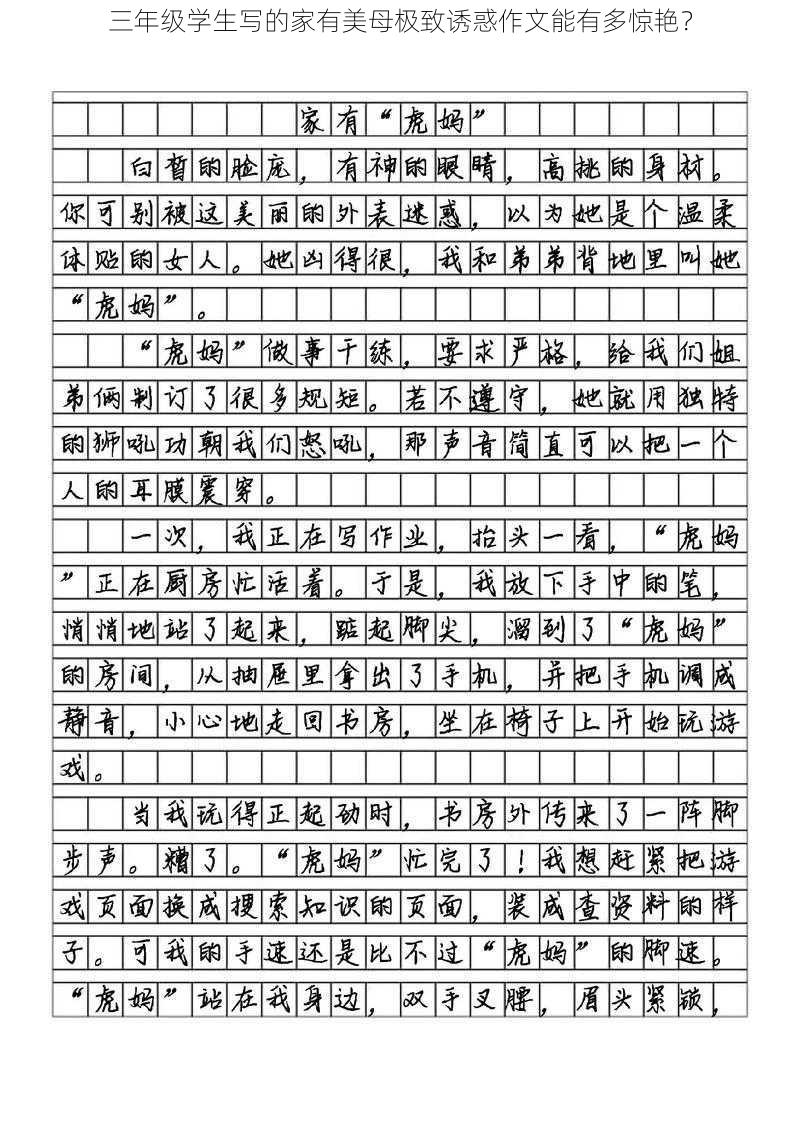 三年级学生写的家有美母极致诱惑作文能有多惊艳?
家有“虎妈”
白皙的脸庞，有神的眼睛，高挑的身材。
你可别被这美丽的外表迷惑，以为她是个温柔
体贴的女人。她凶得很，我和弟弟背地里叫她
“虎妈”。
“虎妈”做事干练，要求严格，给我们姐
弟俩制订了很多规矩。若不遵守，她就用独特
的狮吼功朝我们怒吼，那声音简直可以把一个
人的耳膜震穿。
一次，我正在写作业，抬头一看，“虎妈
”正在厨房忙活着。于是，我放下手中的笔，
悄悄地站了起来，踮起脚尖，溜到了“虎妈”
的房间，从抽屉里拿出了手机，并把手机调成
静音，小心地走回书房，坐在椅子上开始玩游
戏。
当我玩得正起劲时，书房外传来了一阵脚
步声。糟了。“虎妈”忙完了！我想赶紧把游
戏页面换成搜索知识的页面，装成查资料的样
子。可我的手速还是比不过“虎妈”的脚速。
“虎妈”站在我身边，双手叉腰，眉头紧锁，